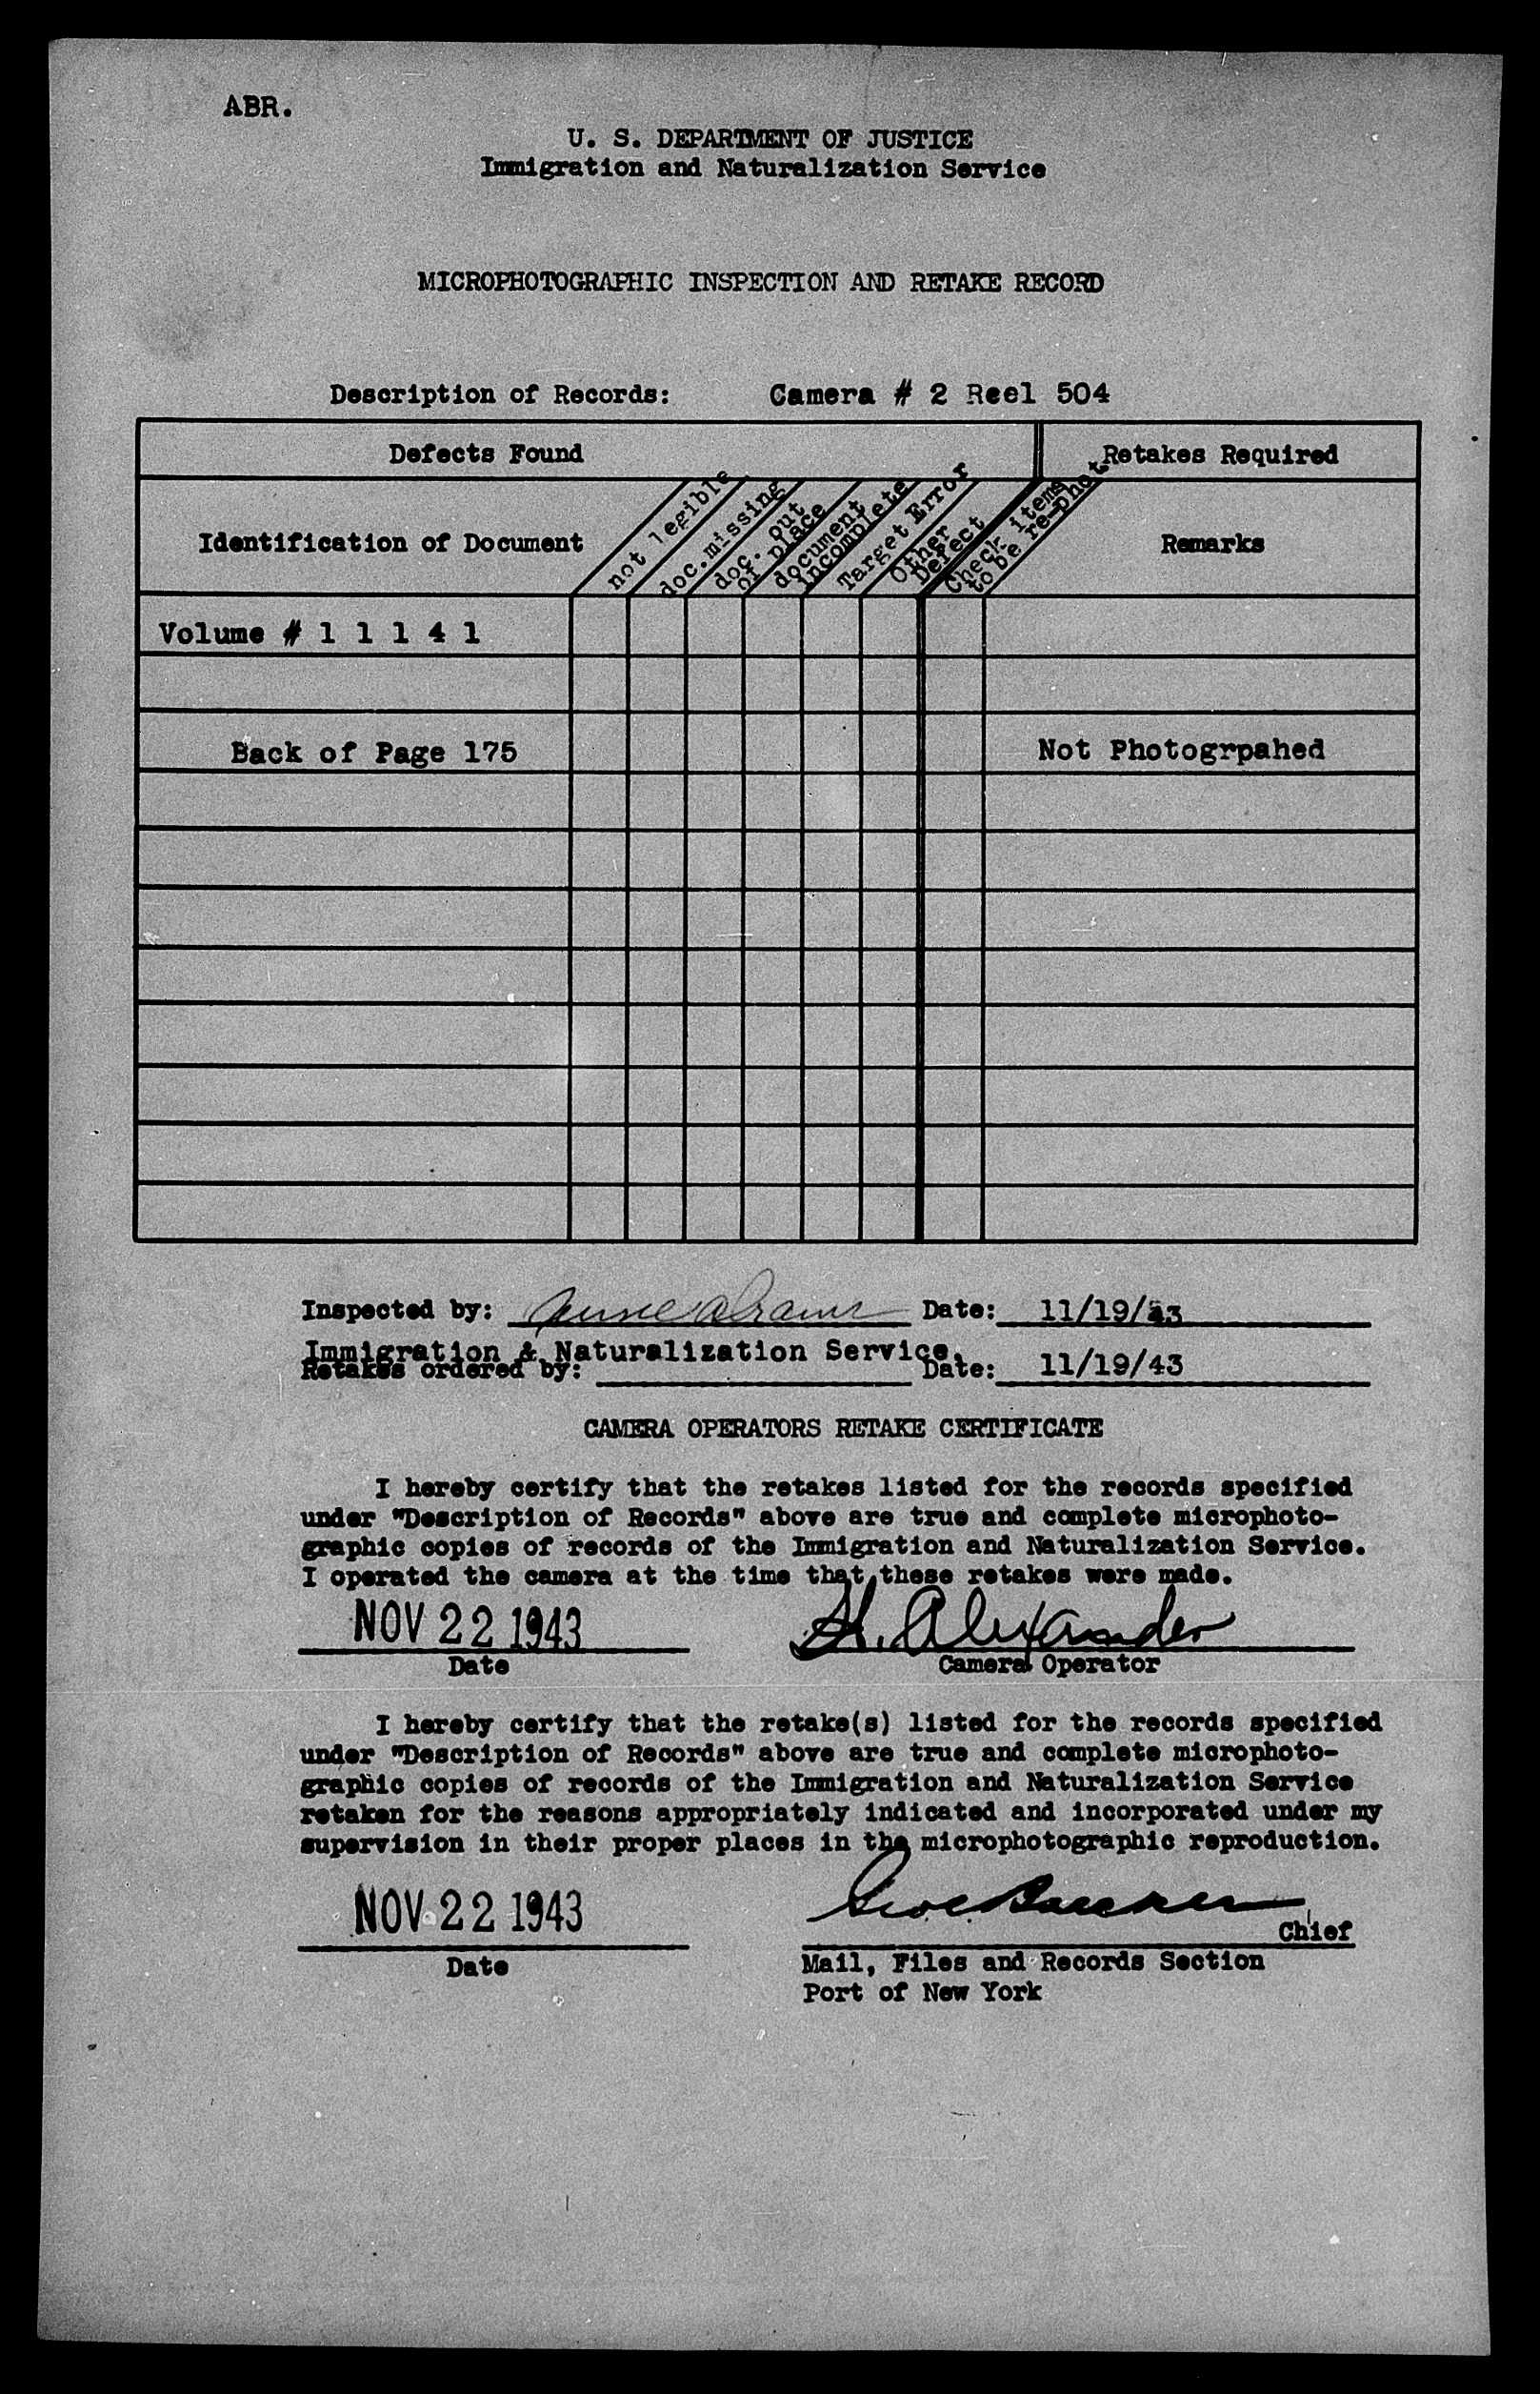 ABR.
U. S. DEPARTMENT OF JUSTICE
Immigration and Naturalization Service
MICROPHOTOGRAPHIC INSPECTION AND RETAKE RECORD
Description of Records: Camera # 2 Reel 504
Defects Found Retakes Required
Identification of Document
not legible
doc.missing
doc. out
of place
document
incomplete
Target Error
Other
Defect
Check items
to be re-phot
Remarks
Volume # 1 1 1 4 1
Back of Page 175 Not Photogrpahed
Inspected by: Date: 11/19/43
Immigration & Naturalization Service.
Retakes ordered by: Date: 11/19/43
CAMERA OPERATORS RETAKE CERTIFICATE
I hereby certify that the retakes listed for the records specified
under "Description of Records" above are true and complete microphoto-
graphic copies of records of the Immigration and Naturalization Service.
I operated the camera at the time that these retakes were made.
NOV 22 1943 H. Alexander
Date Camera Operator
I hereby certify that the retake(s) listed for the records specified
under "Description of Records" above are true and complete microphoto-
graphic copies of records of the Immigration and Naturalization Service
retaken for the reasons appropriately indicated and incorporated under my
supervision in their proper places in the microphotographic reproduction.
NOV 22 1943
Chief
Date Mail, Files and Records Section
Port of New York